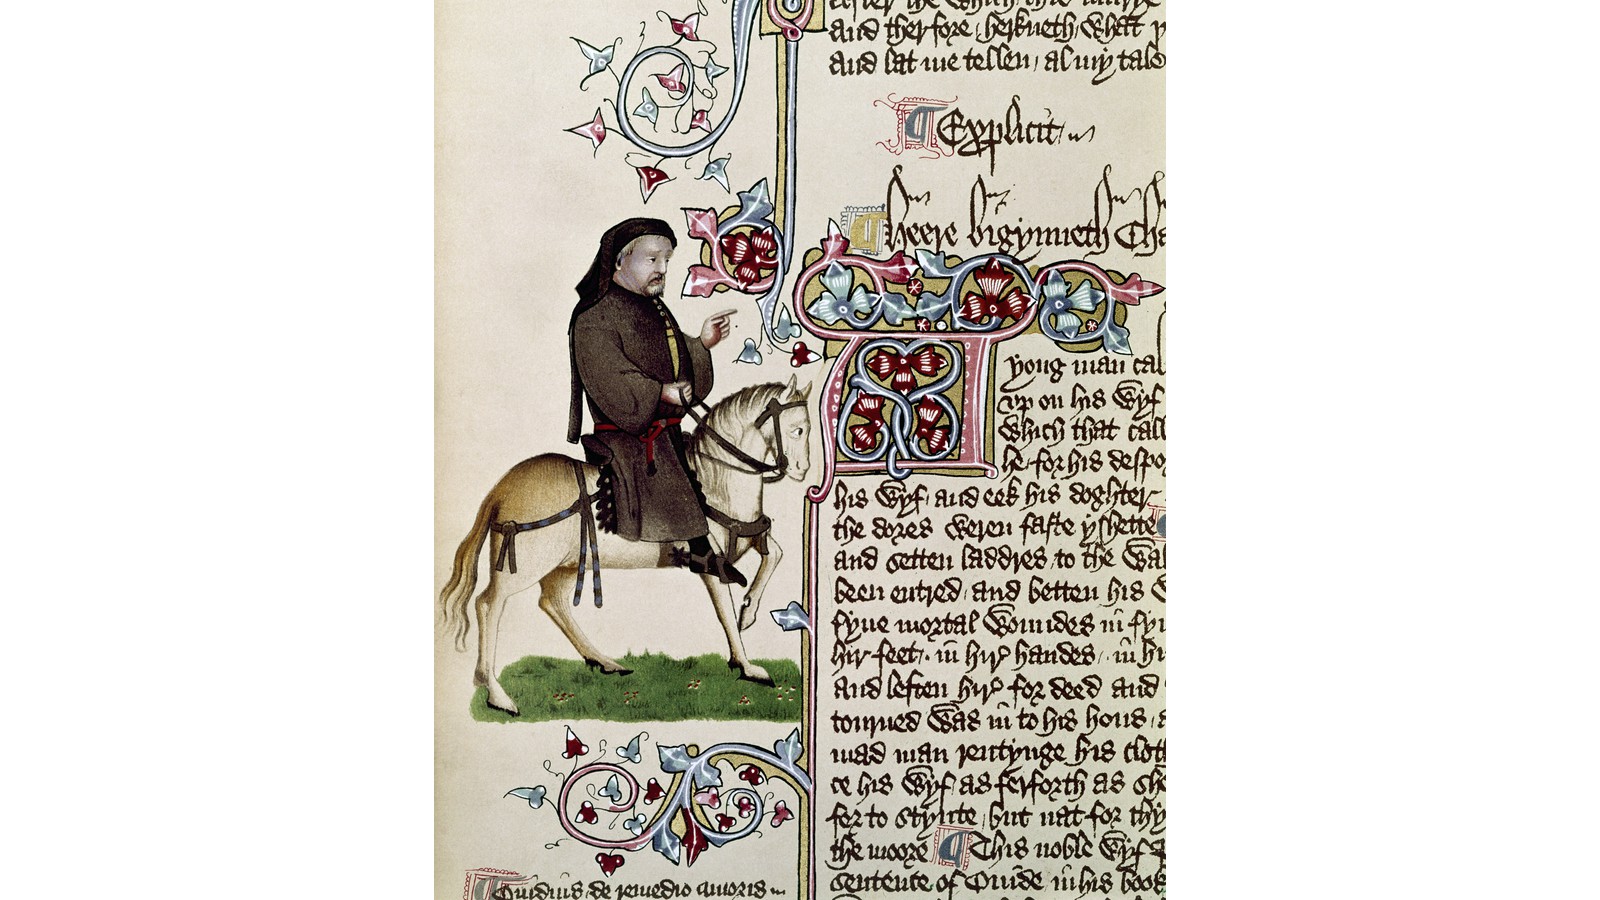 and therfore herkneth what y
And lat me tellen al my tale
¶ Explicit
¶ Heere bigynneth Cha
A yong man cal
vp on his wyf
which that call
he for his despo
his wyf and eek his doghter
the dores weren faste yshette
and setten laddres to the wal
been entred and betten his
fyue mortal woundes in fyn
hir feet in hir handes in hi
and leften hir for deed and
tourned was in to his hous a
mad man rentynge his cloth
ce his wyf as ferforth as she
for to stynte but nat for thy
the moore ¶ This noble wyf P
sentence of Ouide in his book
¶ Ouidius de remedio amoris